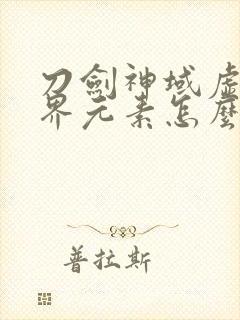 刀劍神域虛
界元素怎麼
普拉斯